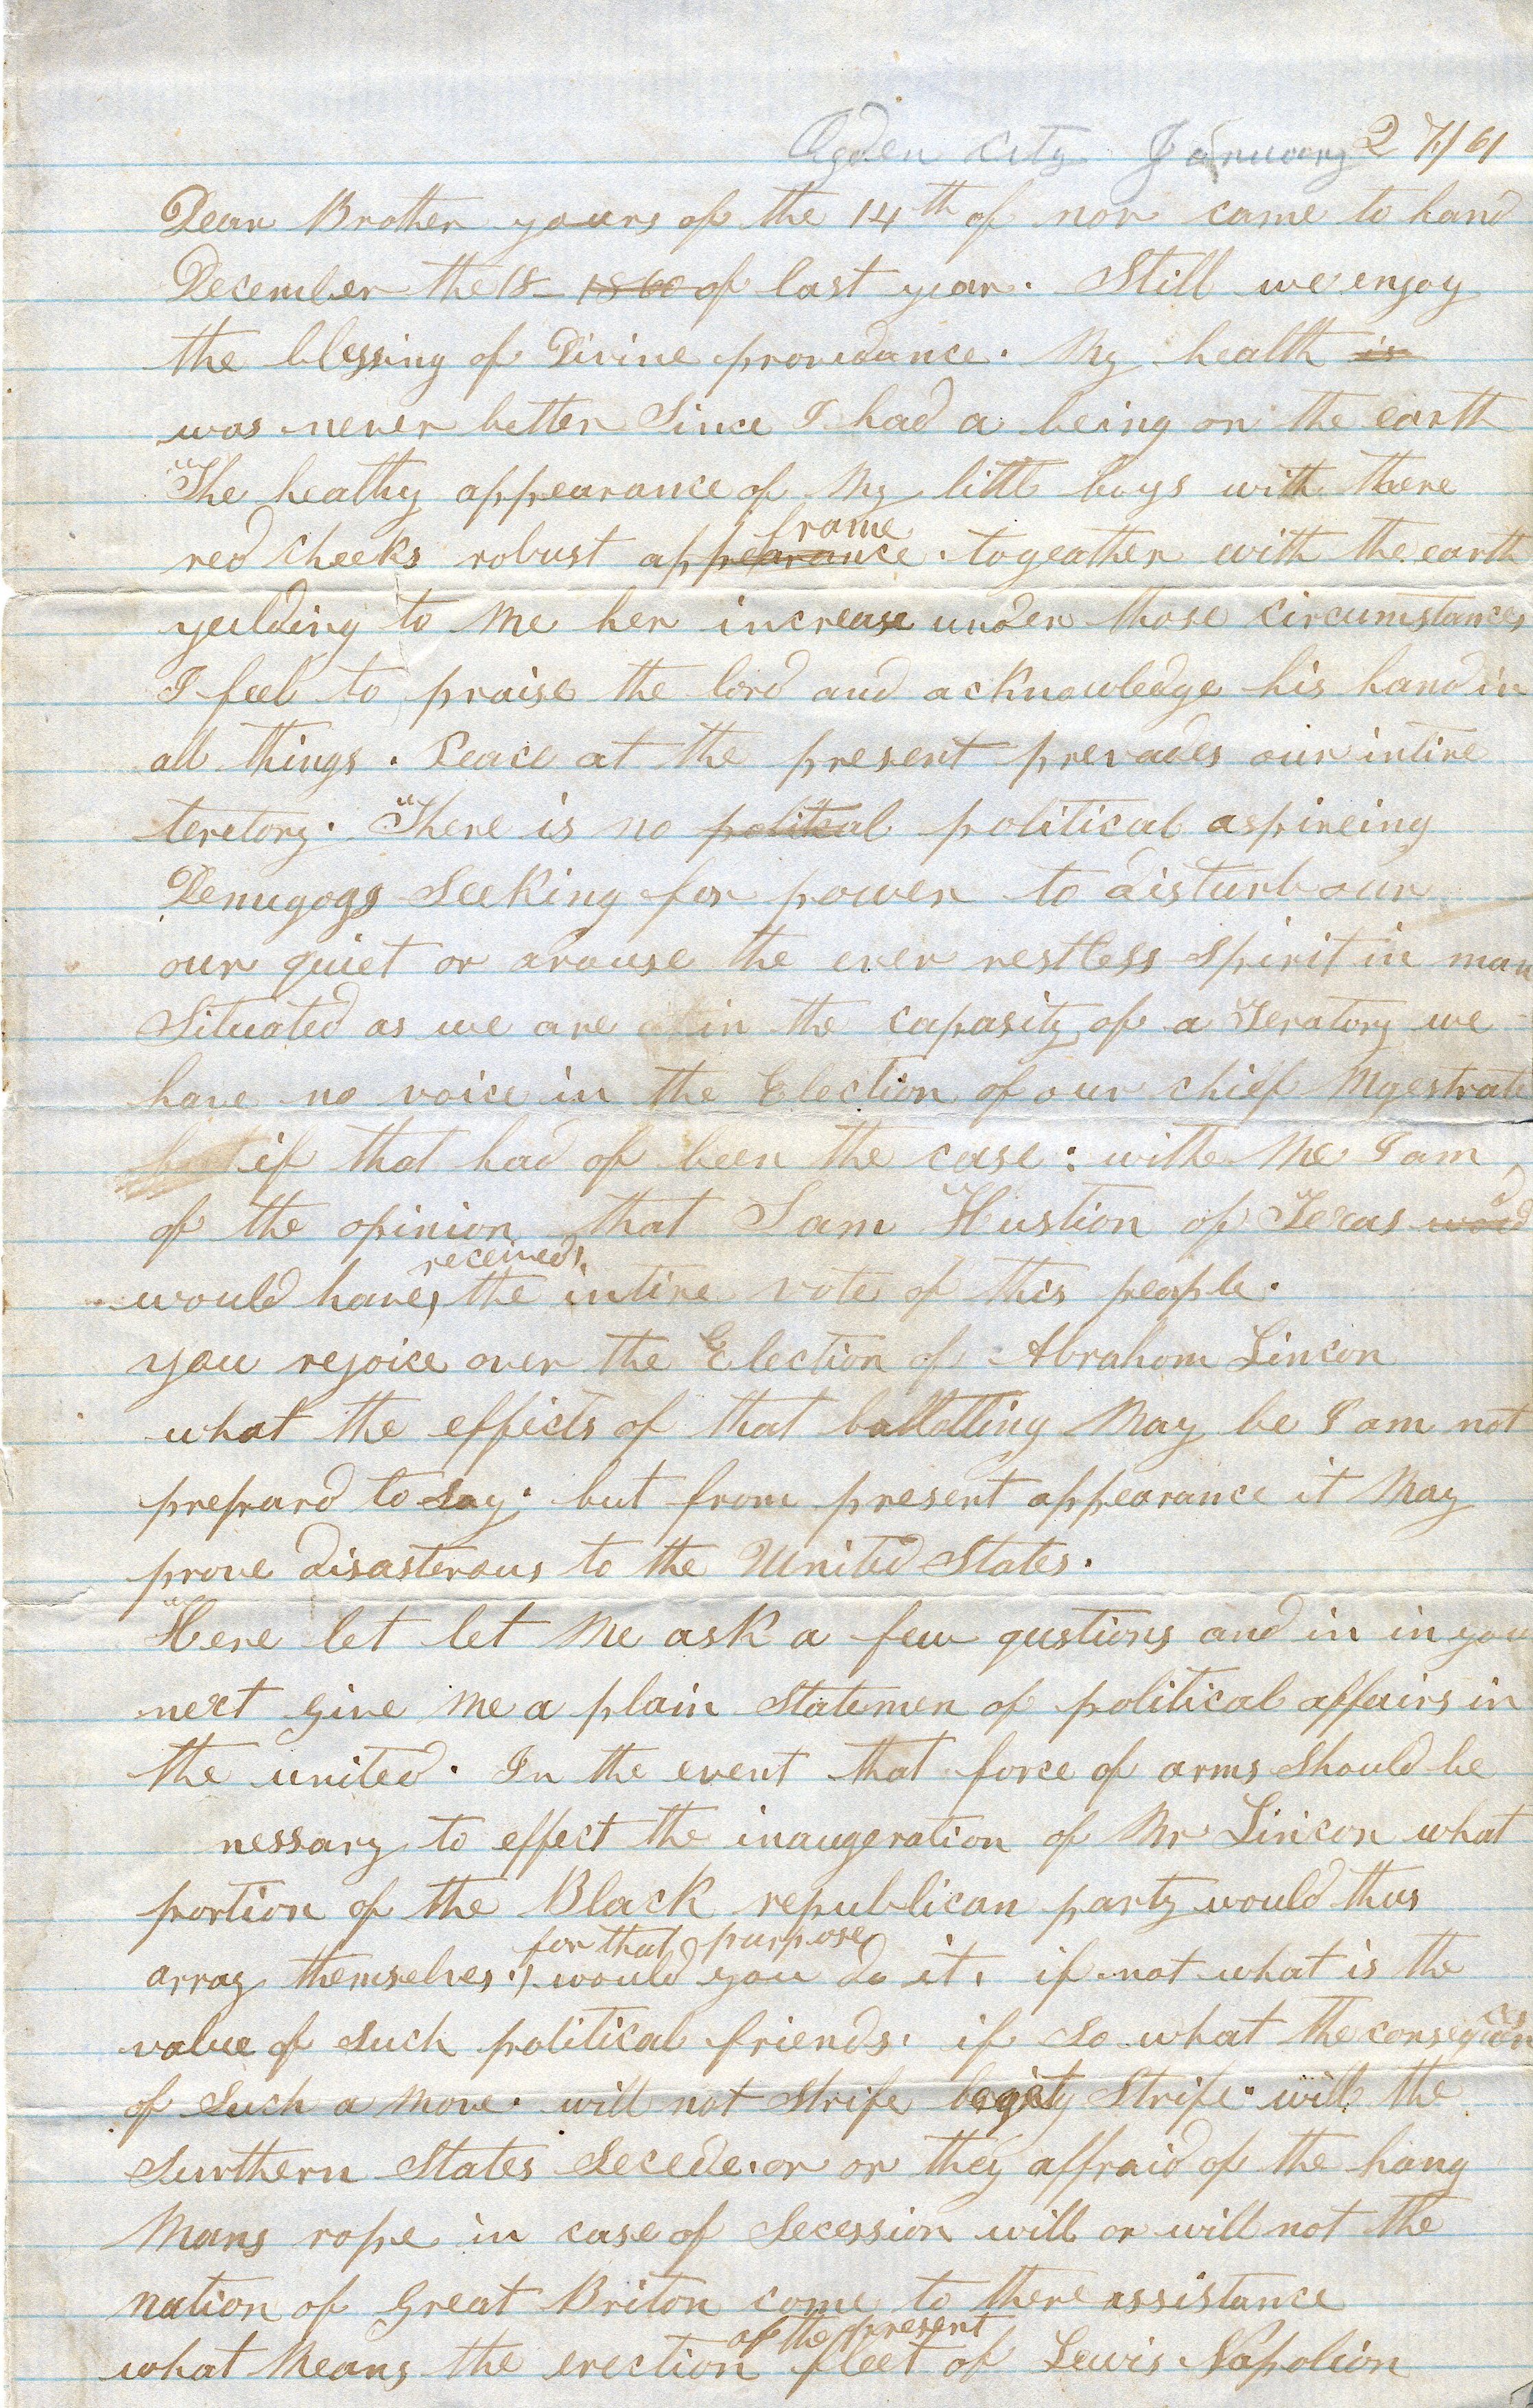 Ogden City January 27/61
Dear Brother yours of the 14th of nov came to hand
December the 18 1860 of last year. Still we enjoy
the blessing of Divine providance. My health is
was never better Since I had a being on the earth
The heathy appearance of My little boys with there
frame
red cheeks robust appearance. togeather with the earth
yeilding to Me her increase under those circumstances
I feel to praise the lord and acknowledge his hand in
all things. Peace at the present prevades our intire
teretory. There is no politcal political aspireing
Demugogs Seeking for power to disturb our
our quiet or arouse the ever restless Spirit in man
Situated as we are in the capasity of a Teratory we
have no voice in the Election of our chief Mgestrate
but if that had of been the case: with Me I am
of the opinion that Sam Hustion of Texas
received
would have, the intire vote of this people.
you rejoice over the Election of Abraham Lincon
what the effects of that ballatting May be I am not
prepard to Say. but from present appearance it May
prove disasterous to the United States.
Here let let Me ask a few qustions and in in you
next give Me a plain Statemen of political affairs in
the united. In the event that force of arms Should be
nessary to effect the inaugeration of Mr Lincon what
portion of the Black republican party would thus
for that purpose
array themselves., would you do it. if not what is the
value of Such political friends. if So what the
of Such a Move. will not Strife Strife. will the
Surthern States Secede. or or they affraid of the hang
Mans rope in case of Secession will or will not the
nation of Great Briton come to there assistance
of the present
what Means the erection fleet of Lewis Napolion